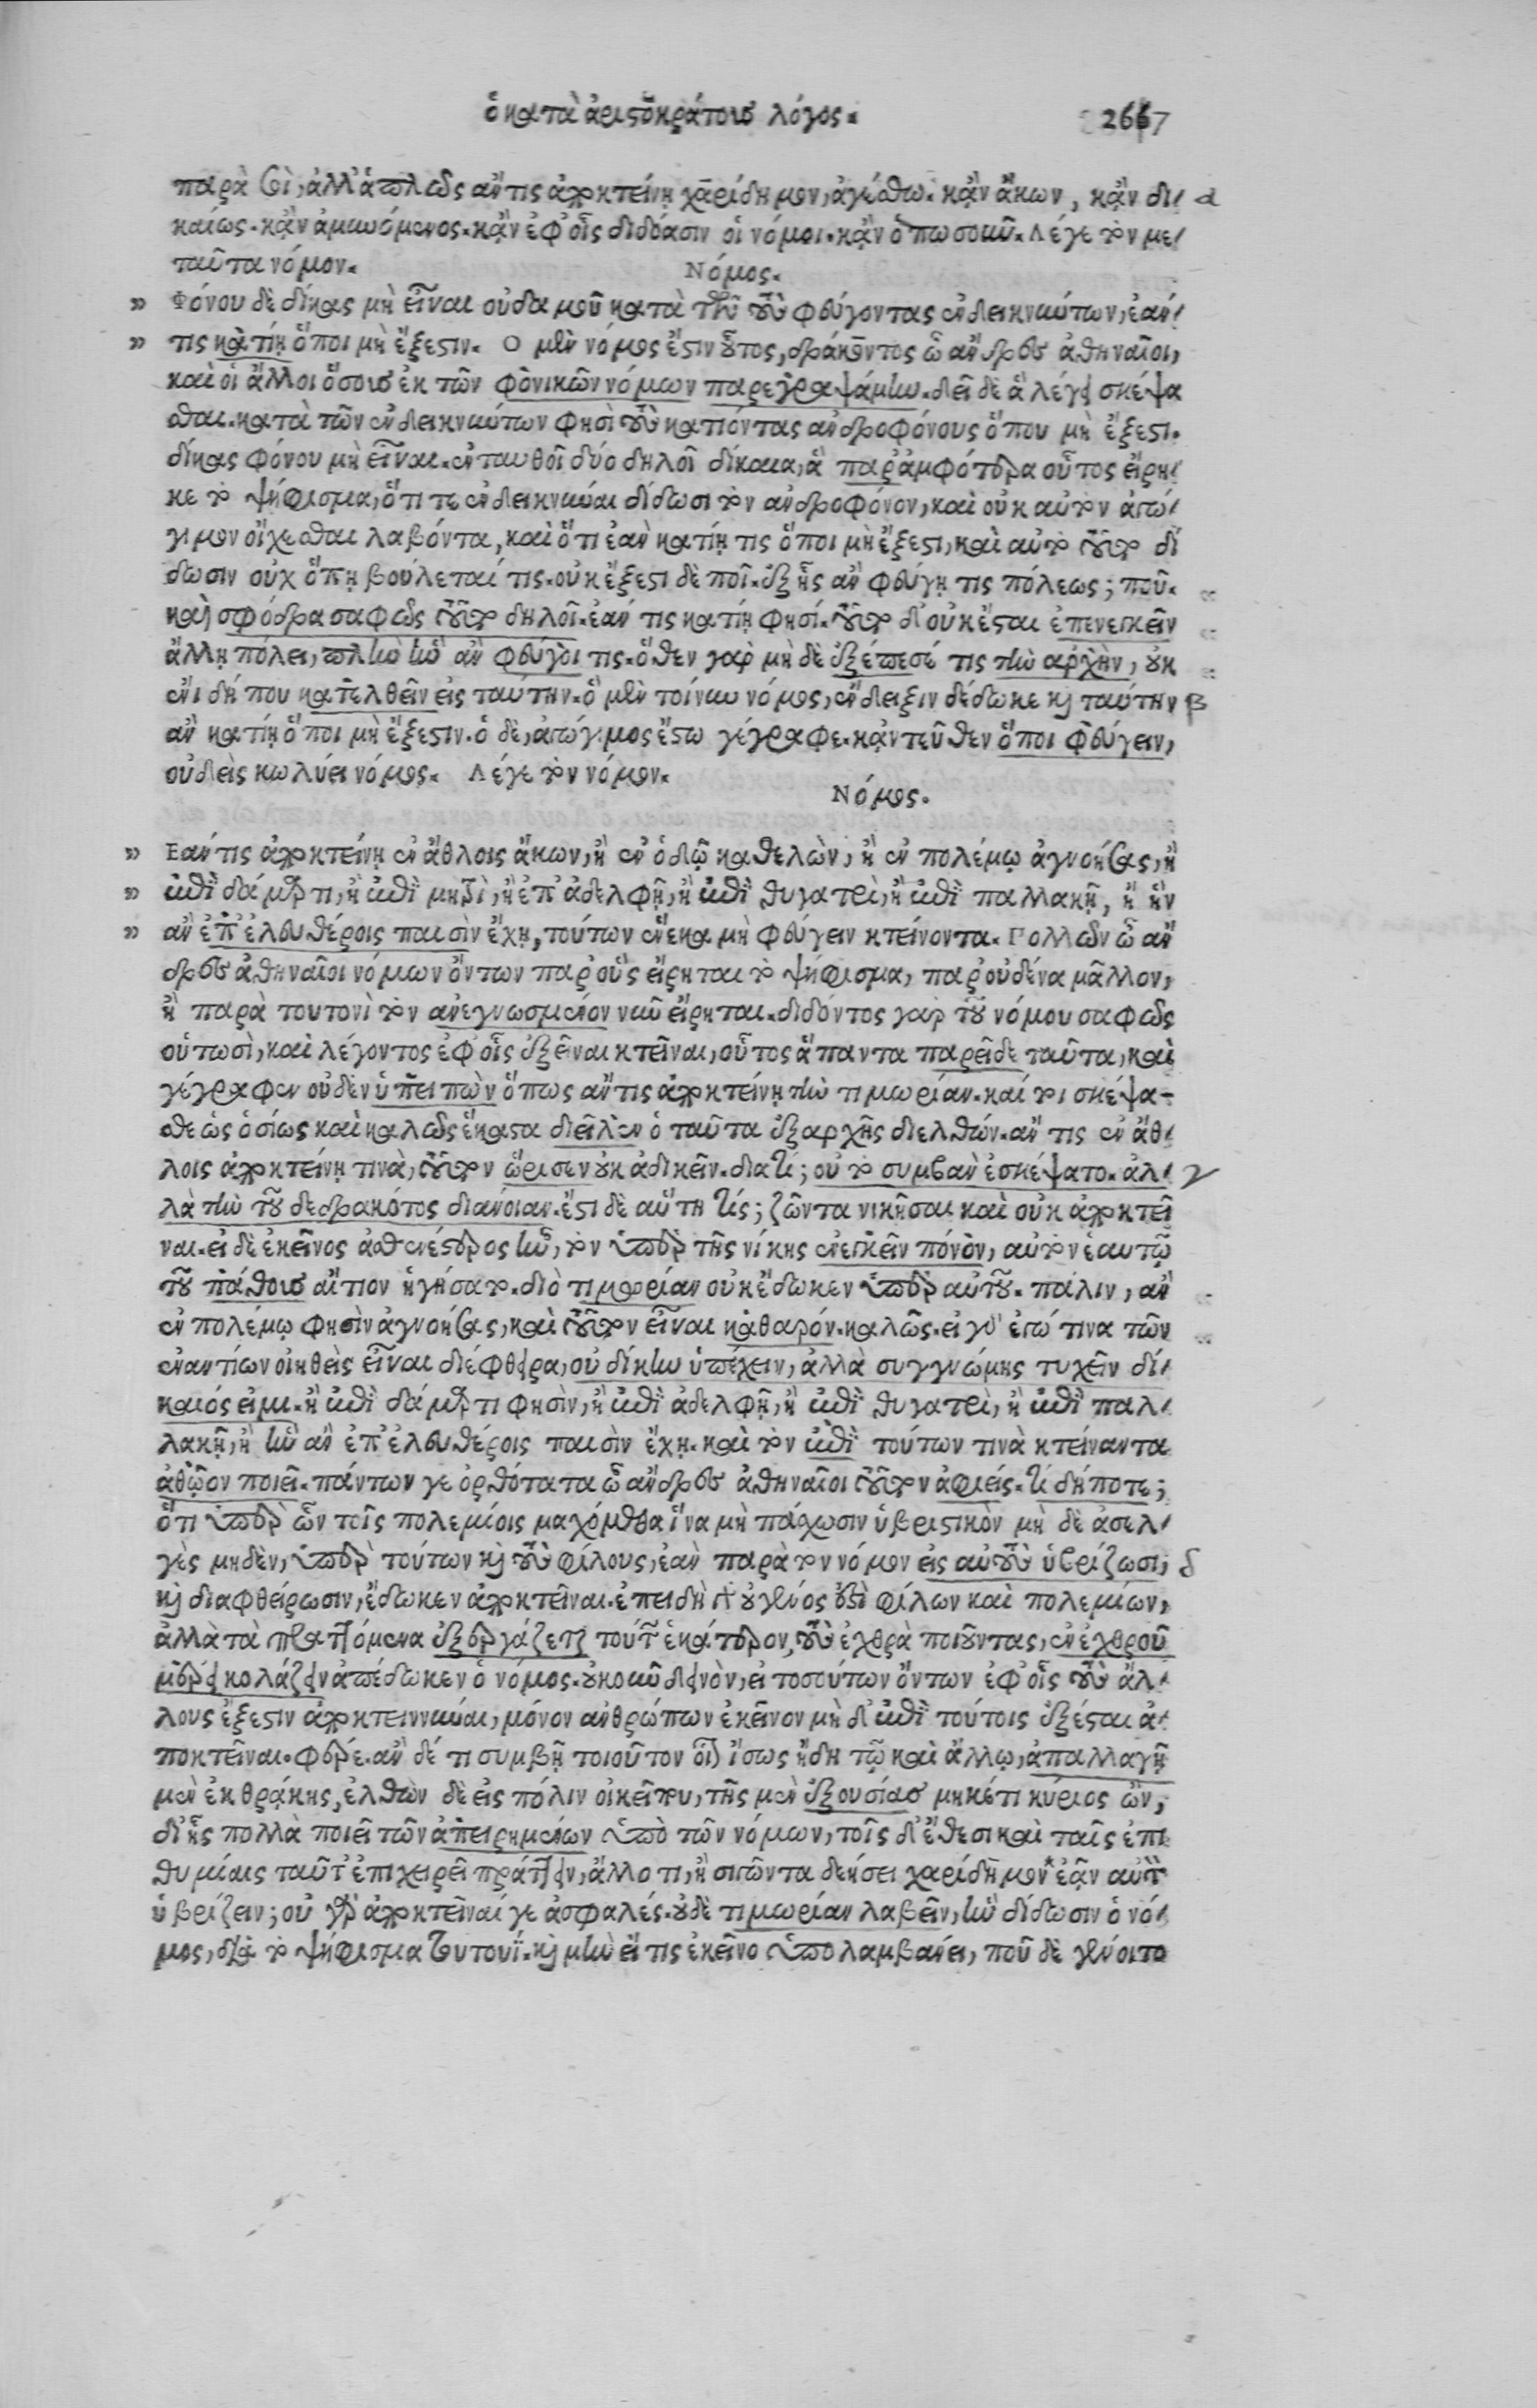 ὁ κατὰ ἀριστοκράτους λόγος. 2667
παρὰ σοὶ, ἀλλ' ἁπλῶς ἄν τις ἀποκτείνῃ χαρίδημον, ἀγέσθω. κἂν ἄκων, κἂν δι- α
καίως. κἂν ἀμυνόμενος. κἂν ἐφ' οἷς διδόασιν οἱ νόμοι. κἂν ὁπωσοῦν. Λέγε τὸν με-
ταῦτα νόμον. Νόμος.
» Φόνου δὲ δίκας μὴ εἶναι οὐδαμοῦ κατὰ τῶν τοὺς φεύγοντας ἐνδεικνύντων, ἐάν-
» τις κατίῃ ὅποι μὴ ἔξεστιν. Ὁ μὲν νόμος ἐστὶν οὗτος, δράκοντος ὦ ἄνδρες ἀθηναῖοι,
καὶ οἱ ἄλλοι ὅσους ἐκ τῶν φονικῶν νόμων παρεγραψάμην. δεῖ δὲ ἃ λέγει σκέψα
σθαι. κατὰ τῶν ἐνδεικνύντων φησὶ τοὺς κατιόντας ἀνδροφόνους ὅπου μὴ ἔξεστι.
δίκας φόνου μὴ εἶναι. ἐνταυθοῖ δύο δηλοῖ δίκαια, ἃ παρ' ἀμφότερα οὗτος εἴρη-
κε τὸ ψήφισμα, ὅτι τε ἐνδεικνύναι δίδωσι τὸν ἀνδροφόνον, καὶ οὐκ αὐτὸν ἀγώ-
γιμον οἴχεσθαι λαβόντα, καὶ ὅτι ἐὰν κατίῃ τις ὅποι μὴ ἔξεστι, καὶ αὐτὸ τοῦτο δί
δωσιν οὐχ ὅπῃ βούλεταί τις. οὐκ ἔξεστι δὲ ποῖ. ἐξ ἧς ἂν φεύγῃ τις πόλεως; ποῦ.
καὶ σφόδρα σαφῶς τοῦτο δηλοῖ. ἐάν τις κατίῃ φησί. τοῦτο δ' οὐκ ἔσται ἐπενεγκεῖν
ἄλλῃ πόλει, πλὴν ἣν ἂν φεύγοι τις. ὅθεν γὰρ μὴ δὲ ἐξέπεσέ τις τὴν ἀρχὴν, οὐκ
ἔνι δήπου κατελθεῖν εἰς ταύτην. ὁ μὲν τοίνυν νόμος, ἔνδειξιν δέδωκε καὶ ταύτην β
ἂν κατίῃ ὅποι μὴ ἔξεστιν. ὁ δὲ, ἀγώγιμος ἔστω γέγραφε. κἀντεῦθεν ὅποι φεύγειν,
οὐδεὶς κωλύει νόμος. Λέγε τὸν νόμον.
Νόμος.
» Εάν τις ἀποκτείνῃ ἐν ἄθλοις ἄκων, ἢ ἐν ὁδῷ καθελὼν, ἢ ἐν πολέμῳ ἀγνοήσας, ἢ
» ἐπὶ δάμαρτι, ἢ ἐπὶ μητρὶ, ἢ ἐπ' ἀδελφῇ, ἢ ἐπὶ θυγατρὶ, ἢ ἐπὶ παλλακῇ, ἢ ἣν
» ἂν ἐπ' ἐλευθέροις παισὶν ἔχῃ, τούτων ἕνεκα μὴ φεύγειν κτείνοντα. Πολλῶν ὦ ἄν
δρες ἀθηναῖοι νόμων ὄντων παρ' οὓς εἴρηται τὸ ψήφισμα, παρ' οὐδένα μᾶλλον,
ἢ παρὰ τουτονὶ τὸν ἀνεγνωσμένον νῦν εἴρηται. διδόντος γὰρ τοῦ νόμου σαφῶς
οὑτωσὶ, καὶ λέγοντος ἐφ' οἷς ἐξεῖναι κτεῖναι, οὗτος ἅπαντα παρεῖδε ταῦτα, καὶ
γέγραφεν οὐδὲν ὑπειπὼν ὅπως ἄν τις ἀποκτείνῃ τὴν τιμωρίαν. καί τοι σκέψα-
σθε ὡς ὁσίως καὶ καλῶς ἕκαστα διεῖλεν ὁ ταῦτα ἐξαρχῆς διελθών. ἄν τις ἐν ἄθ-
λοις ἀποκτείνῃ τινὰ, τοῦτον ὥρισεν οὐκ ἀδικεῖν. διατί; οὐ τὸ συμβὰν ἐσκέψατο. ἀλ- γ
λὰ τὴν τοῦ δεδρακότος διάνοιαν. ἔστι δὲ αὕτη τίς; ζῶντα νικῆσαι καὶ οὐκ ἀποκτεῖ
ναι. εἰ δὲ ἐκεῖνος ἀσθενέστερος ἦν, τὸν ὑπὲρ τῆς νίκης ἐνεγκεῖν πόνον, αὐτὸν ἑαυτῷ
τοῦ πάθους αἴτιον ἡγήσατο. διὸ τιμωρίαν οὐκ ἔδωκεν ὑπὲρ αὐτοῦ. πάλιν, ἂν
ἐν πολέμῳ φησὶν ἀγνοήσας, καὶ τοῦτον εἶναι καθαρόν. καλῶς. εἰ γὰρ ἐγώ τινα τῶν
ἐναντίων οἰηθεὶς εἶναι διέφθειρα, οὐ δίκην ὑπέχειν, ἀλλὰ συγγνώμης τυχεῖν δί-
καιός εἰμι. ἢ ἐπὶ δάμαρτι φησὶν, ἢ ἐπὶ ἀδελφῇ, ἢ ἐπὶ θυγατρὶ, ἢ ἐπὶ παλ-
λακῇ, ἢ ἣν ἂν ἐπ' ἐλευθέροις παισὶν ἔχῃ. καὶ τὸν ἐπὶ τούτων τινὰ κτείναντα
ἀθῷον ποιεῖ. πάντων γε ὀρθότατα ὦ ἄνδρες ἀθηναῖοι τοῦτον ἀφιείς. τί δήποτε;
ὅτι ὑπὲρ ὧν τοῖς πολεμίοις μαχόμεθα ἵνα μὴ πάσχωσιν ὑβριστικὸν μὴ δὲ ἀσελ-
γὲς μηδὲν, ὑπὲρ τούτων καὶ τοὺς φίλους, ἐὰν παρὰ τὸν νόμον εἰς αὐτοὺς ὑβρίζωσι, δ
καὶ διαφθείρωσιν, ἔδωκεν ἀποκτεῖναι. ἐπειδὴ γὰρ οὐ γένος ἐστὶ φίλων καὶ πολεμίων,
ἀλλὰ τὰ πραττόμενα ἐξεργάζεται τούτων ἑκάτερον, τοὺς ἐχθρὰ ποιοῦντας, ἐν ἐχθροῦ
μέρει κολάζειν ἀπέδωκεν ὁ νόμος. οὐκοῦν δεινὸν, εἰ τοσούτων ὄντων ἐφ' οἷς τοὺς ἄλ-
λους ἔξεστιν ἀποκτεινύναι, μόνον ἀνθρώπων ἐκεῖνον μὴ δ' ἐπὶ τούτοις ἐξέσται ἀ-
ποκτεῖναι. φέρε. ἂν δέ τι συμβῇ τοιοῦτον οἷον ἴσως ἤδη τῷ καὶ ἄλλῳ, ἀπαλλαγῇ
μὲν ἐκ θράκης, ἐλθὼν δὲ εἰς πόλιν οἰκεῖ που, τῆς μὲν ἐξουσίας μηκέτι κύριος ὢν,
δι' ἧς πολλὰ ποιεῖ τῶν ἀπειρημένων ὑπὸ τῶν νόμων, τοῖς δ' ἔθεσι καὶ ταῖς ἐπι
θυμίαις ταῦτ' ἐπιχειρεῖ πράττειν, ἄλλο τι, ἢ σιγῶντα δεήσει χαρίδημον ἐᾶν αὑτὸν
ὑβρίζειν; οὐ γὰρ ἀποκτεῖναί γε ἀσφαλές. οὐδὲ τιμωρίαν λαβεῖν, ἣν δίδωσιν ὁ νό-
μος, διὰ τὸ ψήφισμα τουτουΐ. καὶ μὴν εἴ τις ἐκεῖνο ὑπολαμβάνει, ποῦ δὲ γένοιτο